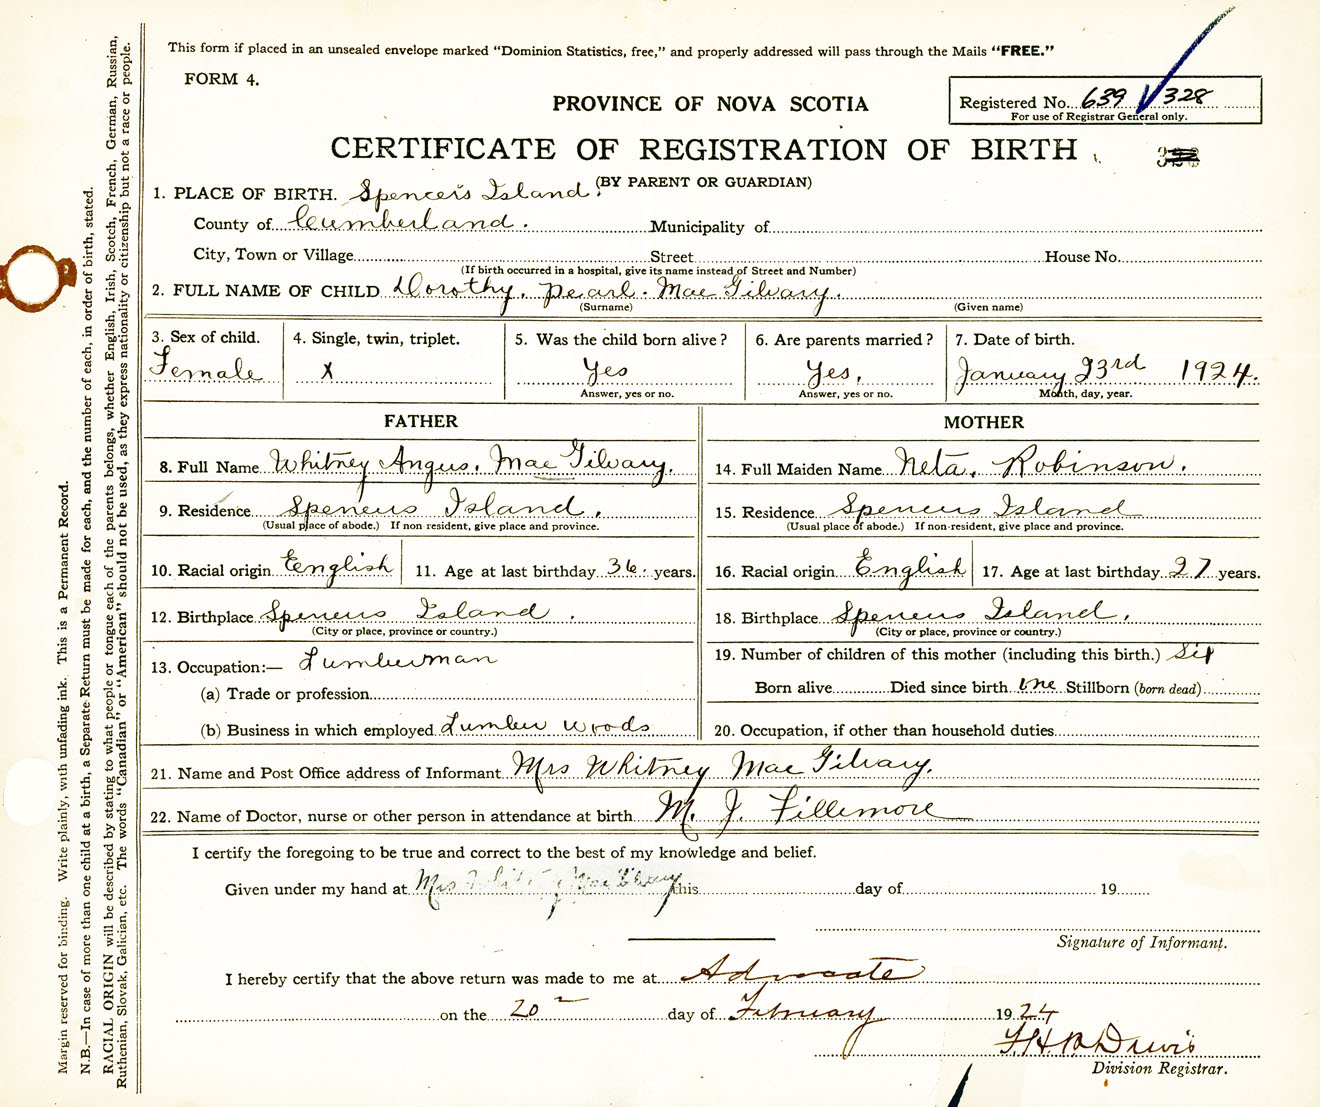 This form if placed in an unsealed envelope marked "Dominion Statistics, free," and properly addressed will pass through the Mails "FREE."
FORM 4.
Registered No. 639 328
For use of Registrar General only.
PROVINCE OF NOVA SCOTIA
CERTIFICATE OF REGISTRATION OF BIRTH
(BY PARENT OR GUARDIAN)
1. PLACE OF BIRTH. Spencer's Island.
County of Cumberland. Municipality of
City, Town or Village Street House No.
(If birth occurred in a hospital, give its name instead of Street and Number)
2. FULL NAME OF CHILD Dorothy. Pearl. MacGilvary.
(Surname) (Given name)
3. Sex of child. 4. Single, twin, triplet. 5. Was the child born alive? 6. Are parents married? 7. Date of birth.
Female X Yes Yes. January 23rd 1924.
Answer, yes or no. Answer, yes or no. Month, day, year.
FATHER MOTHER
8. Full Name Whitney Angus. MacGilvary. 14. Full Maiden Name Neta. Robinson.
9. Residence Spencers Island. 15. Residence Spencers Island
(Usual place of abode.) If non-resident, give place and province. (Usual place of abode.) If non-resident, give place and province.
10. Racial origin English 11. Age at last birthday 36. years. 16. Racial origin English 17. Age at last birthday 27 years.
12. Birthplace Spencers Island. 18. Birthplace Spencers Island.
(City or place, province or country.) (City or place, province or country.)
13. Occupation:— Lumberman 19. Number of children of this mother (including this birth.) Six
(a) Trade or profession Born alive Died since birth one Stillborn (born dead)
(b) Business in which employed Lumber woods 20. Occupation, if other than household duties
21. Name and Post Office address of Informant Mrs Whitney MacGilvary.
22. Name of Doctor, nurse or other person in attendance at birth M. J. Fillemore
I certify the foregoing to be true and correct to the best of my knowledge and belief.
Given under my hand at Mrs Whitney MacGilvary this day of 19
Signature of Informant.
I hereby certify that the above return was made to me at Advocate
on the 20 day of February 1924
Division Registrar.
Margin reserved for binding. Write plainly, with unfading ink. This is a Permanent Record.
N.B.—In case of more than one child at a birth, a Separate Return must be made for each, and the number of each, in order of birth, stated.
RACIAL ORIGIN will be described by stating to what people or tongue each of the parents belongs, whether English, Irish, Scotch, French, German, Russian,
Ruthenian, Slovak, Galician, etc. The words "Canadian" or "American" should not be used, as they express nationality or citizenship but not a race or people.